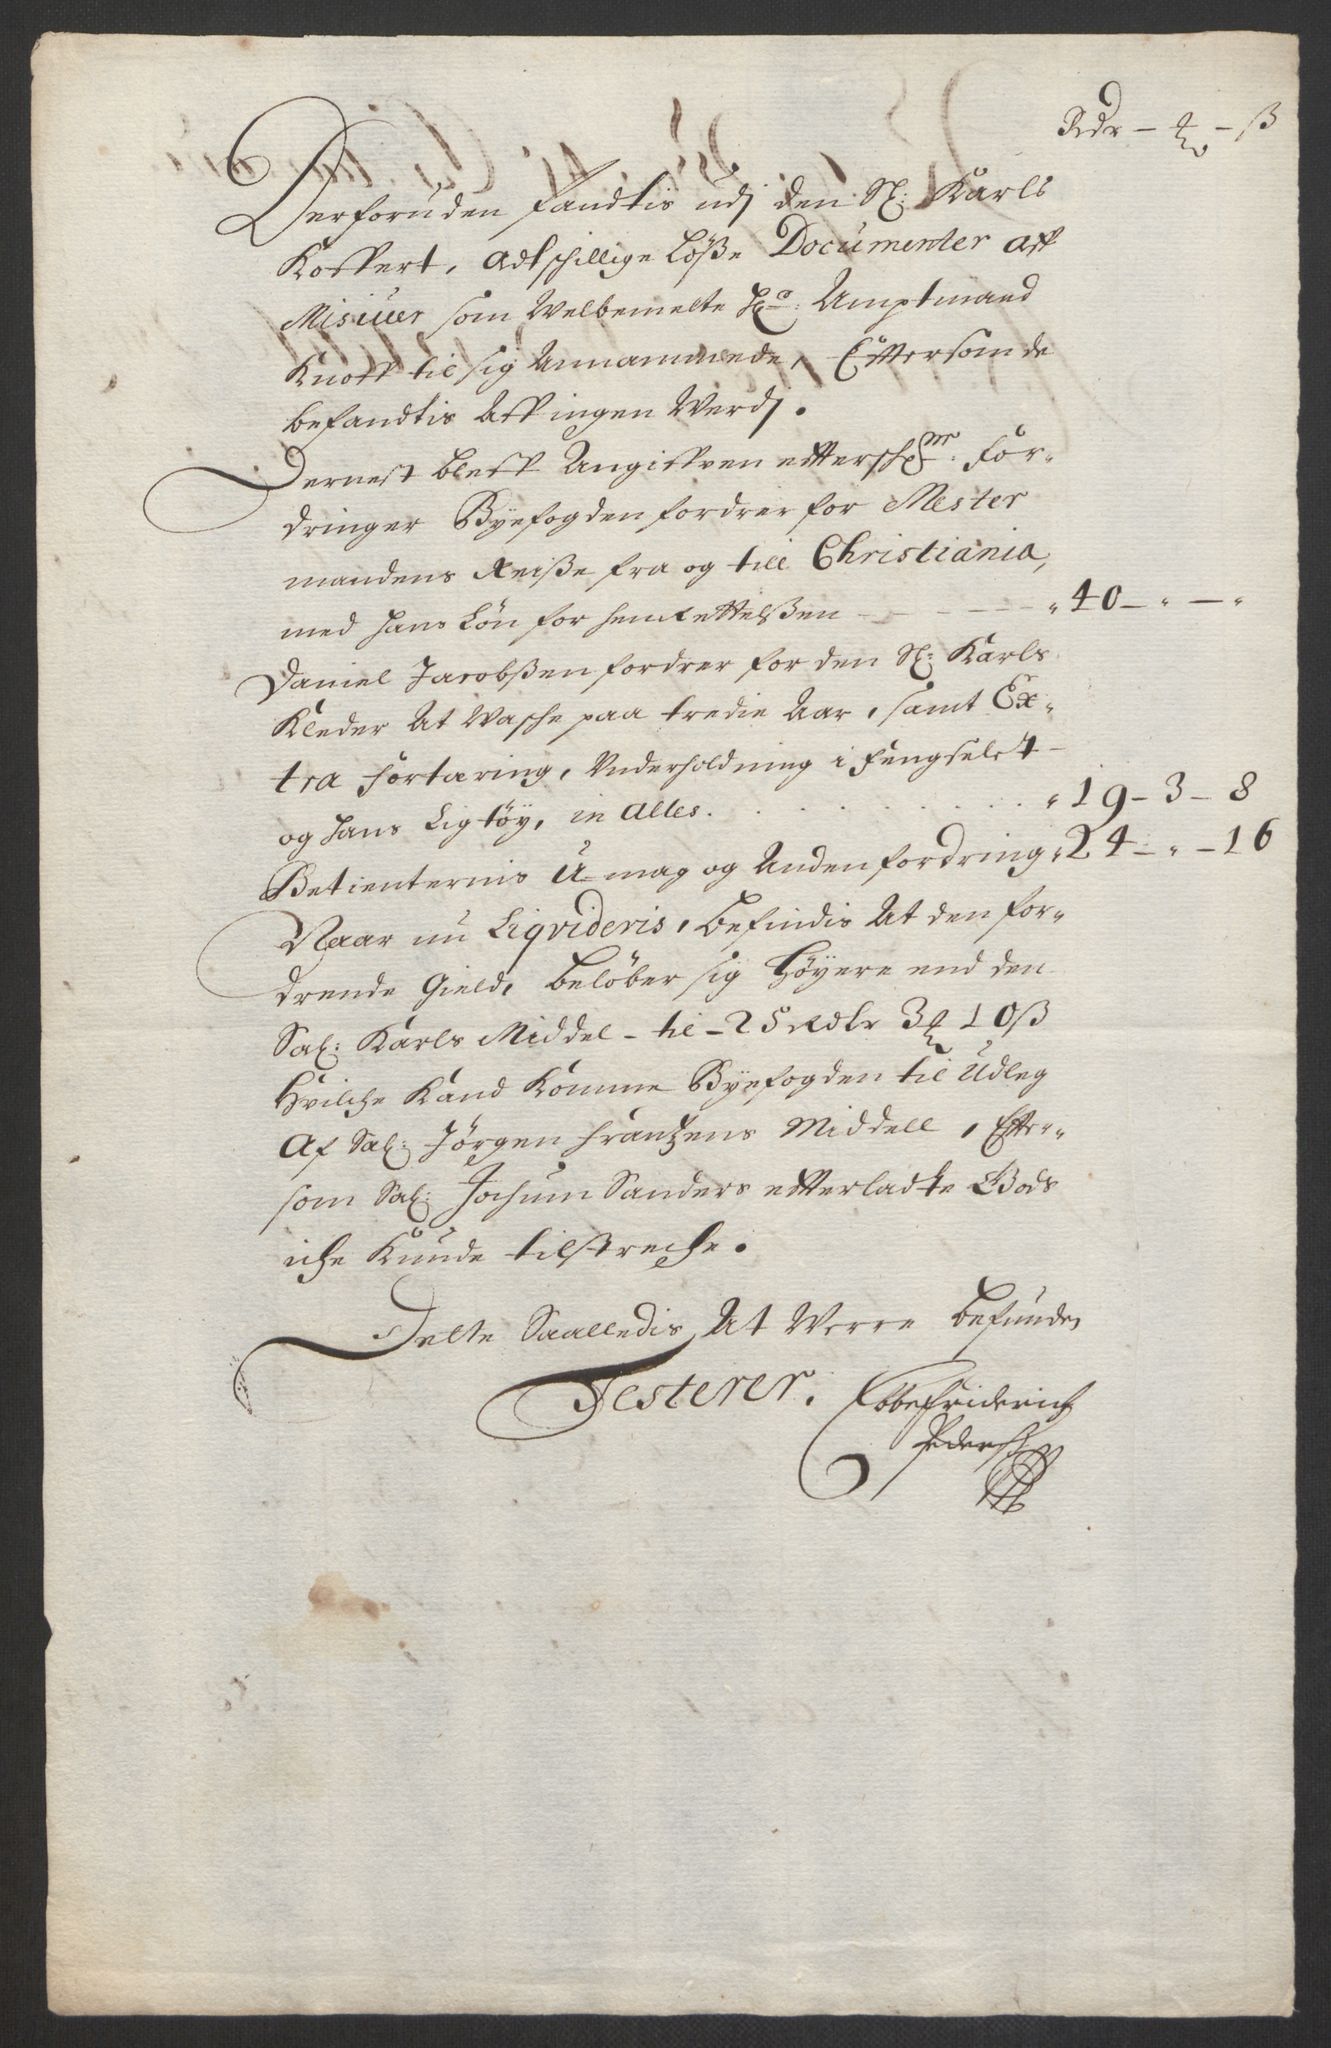 Rdr – ₰ – ß
Derforuden fandtis udj den Sl: Karls
Koffert, adtschillige Löße Documenter aff
Misiver som Welbemelte Hr: Amptmand
Knoff til sig Annammede, Effter som de
befandtis Aff ingen Werdj.
Dernest bleff Angiffven effterschr: For-
dringer Byefogden fordrer for Mester
mandens Reiße fra og till Christiania,
med hans Løn for henrettelßen – – – – " 40 – " – "
Daniel Jacobßen fordrer for den Sl: Karls
Kleder At Wasche paa tredie Aar, samt Ex-
tra Fortæring, Underholdning i Fengselet
og hans Ligtöy, in Alles. . . . . . . " 19 – 3 – 8
Betienternis U-mag og Anden fordring " 24 – " – 16
Naar nu Liqvideris, befindis At den for-
drende Gield, beløber sig Höyere end den
Sal: Karls Middel – til – 25 Rdlr 3 ₰ 10 ß
Hvilche Kand Komme Byefogden til Udleg
Af Sal: Jörgen Frantzens Middell, Effter-
som Sal: Jochum Sanders effterladte Gods
iche Kunde tilstreche.
Dette Saalledis At Werre befunden
Testerer. Ebbe Friderich
Pedersen